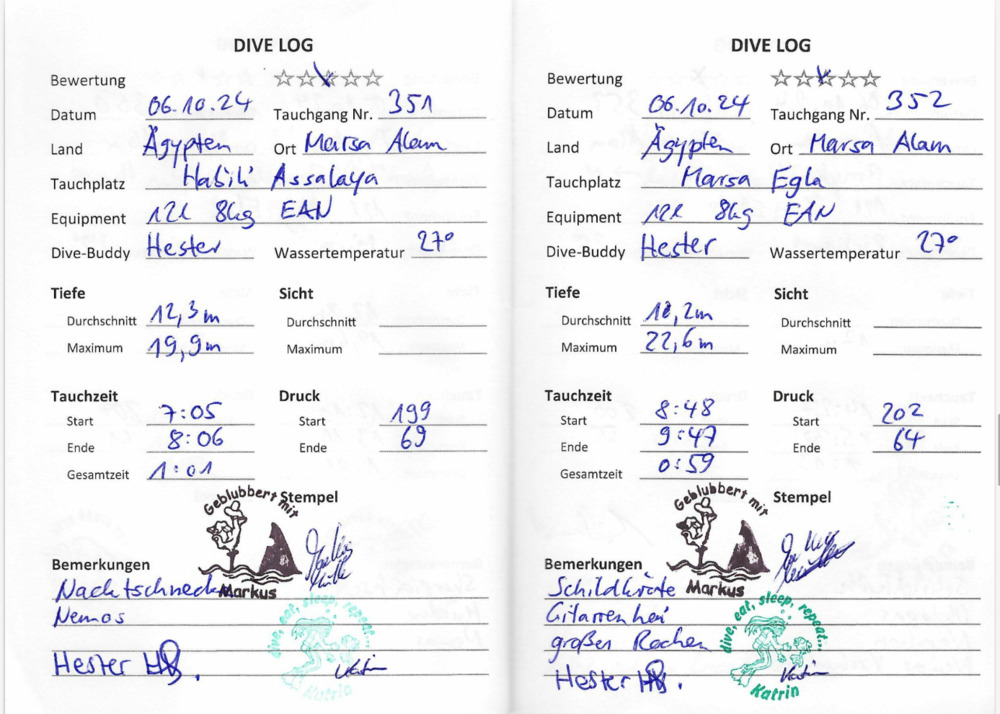 DIVE LOG
Bewertung
Datum 06.10.24 Tauchgang Nr. 351
Land Ägypten Ort Marsa Alam
Tauchplatz Habili Assalaya
Equipment 12l 8kg EAN
Dive-Buddy Hester Wassertemperatur 27°
Tiefe Sicht
Durchschnitt 12,3m Durchschnitt
Maximum 19,9m Maximum
Tauchzeit Druck
Start 7:05 Start 199
Ende 8:06 Ende 69
Gesamtzeit 1:01
Geblubbert mit Stempel
Markus
Bemerkungen
Nachtschnecken
Nemos
dive, eat, sleep, repeat...
Hester
Katrin
DIVE LOG
Bewertung
Datum 06.10.24 Tauchgang Nr. 352
Land Ägypten Ort Marsa Alam
Tauchplatz Marsa Egla
Equipment 12l 8kg EAN
Dive-Buddy Hester Wassertemperatur 27°
Tiefe Sicht
Durchschnitt 10,2m Durchschnitt
Maximum 22,6m Maximum
Tauchzeit Druck
Start 8:48 Start 202
Ende 9:47 Ende 64
Gesamtzeit 0:59
Geblubbert mit Stempel
Markus
Bemerkungen
Schildkröte
Gitarrenhai
großer Rochen
dive, eat, sleep, repeat...
Hester
Katrin